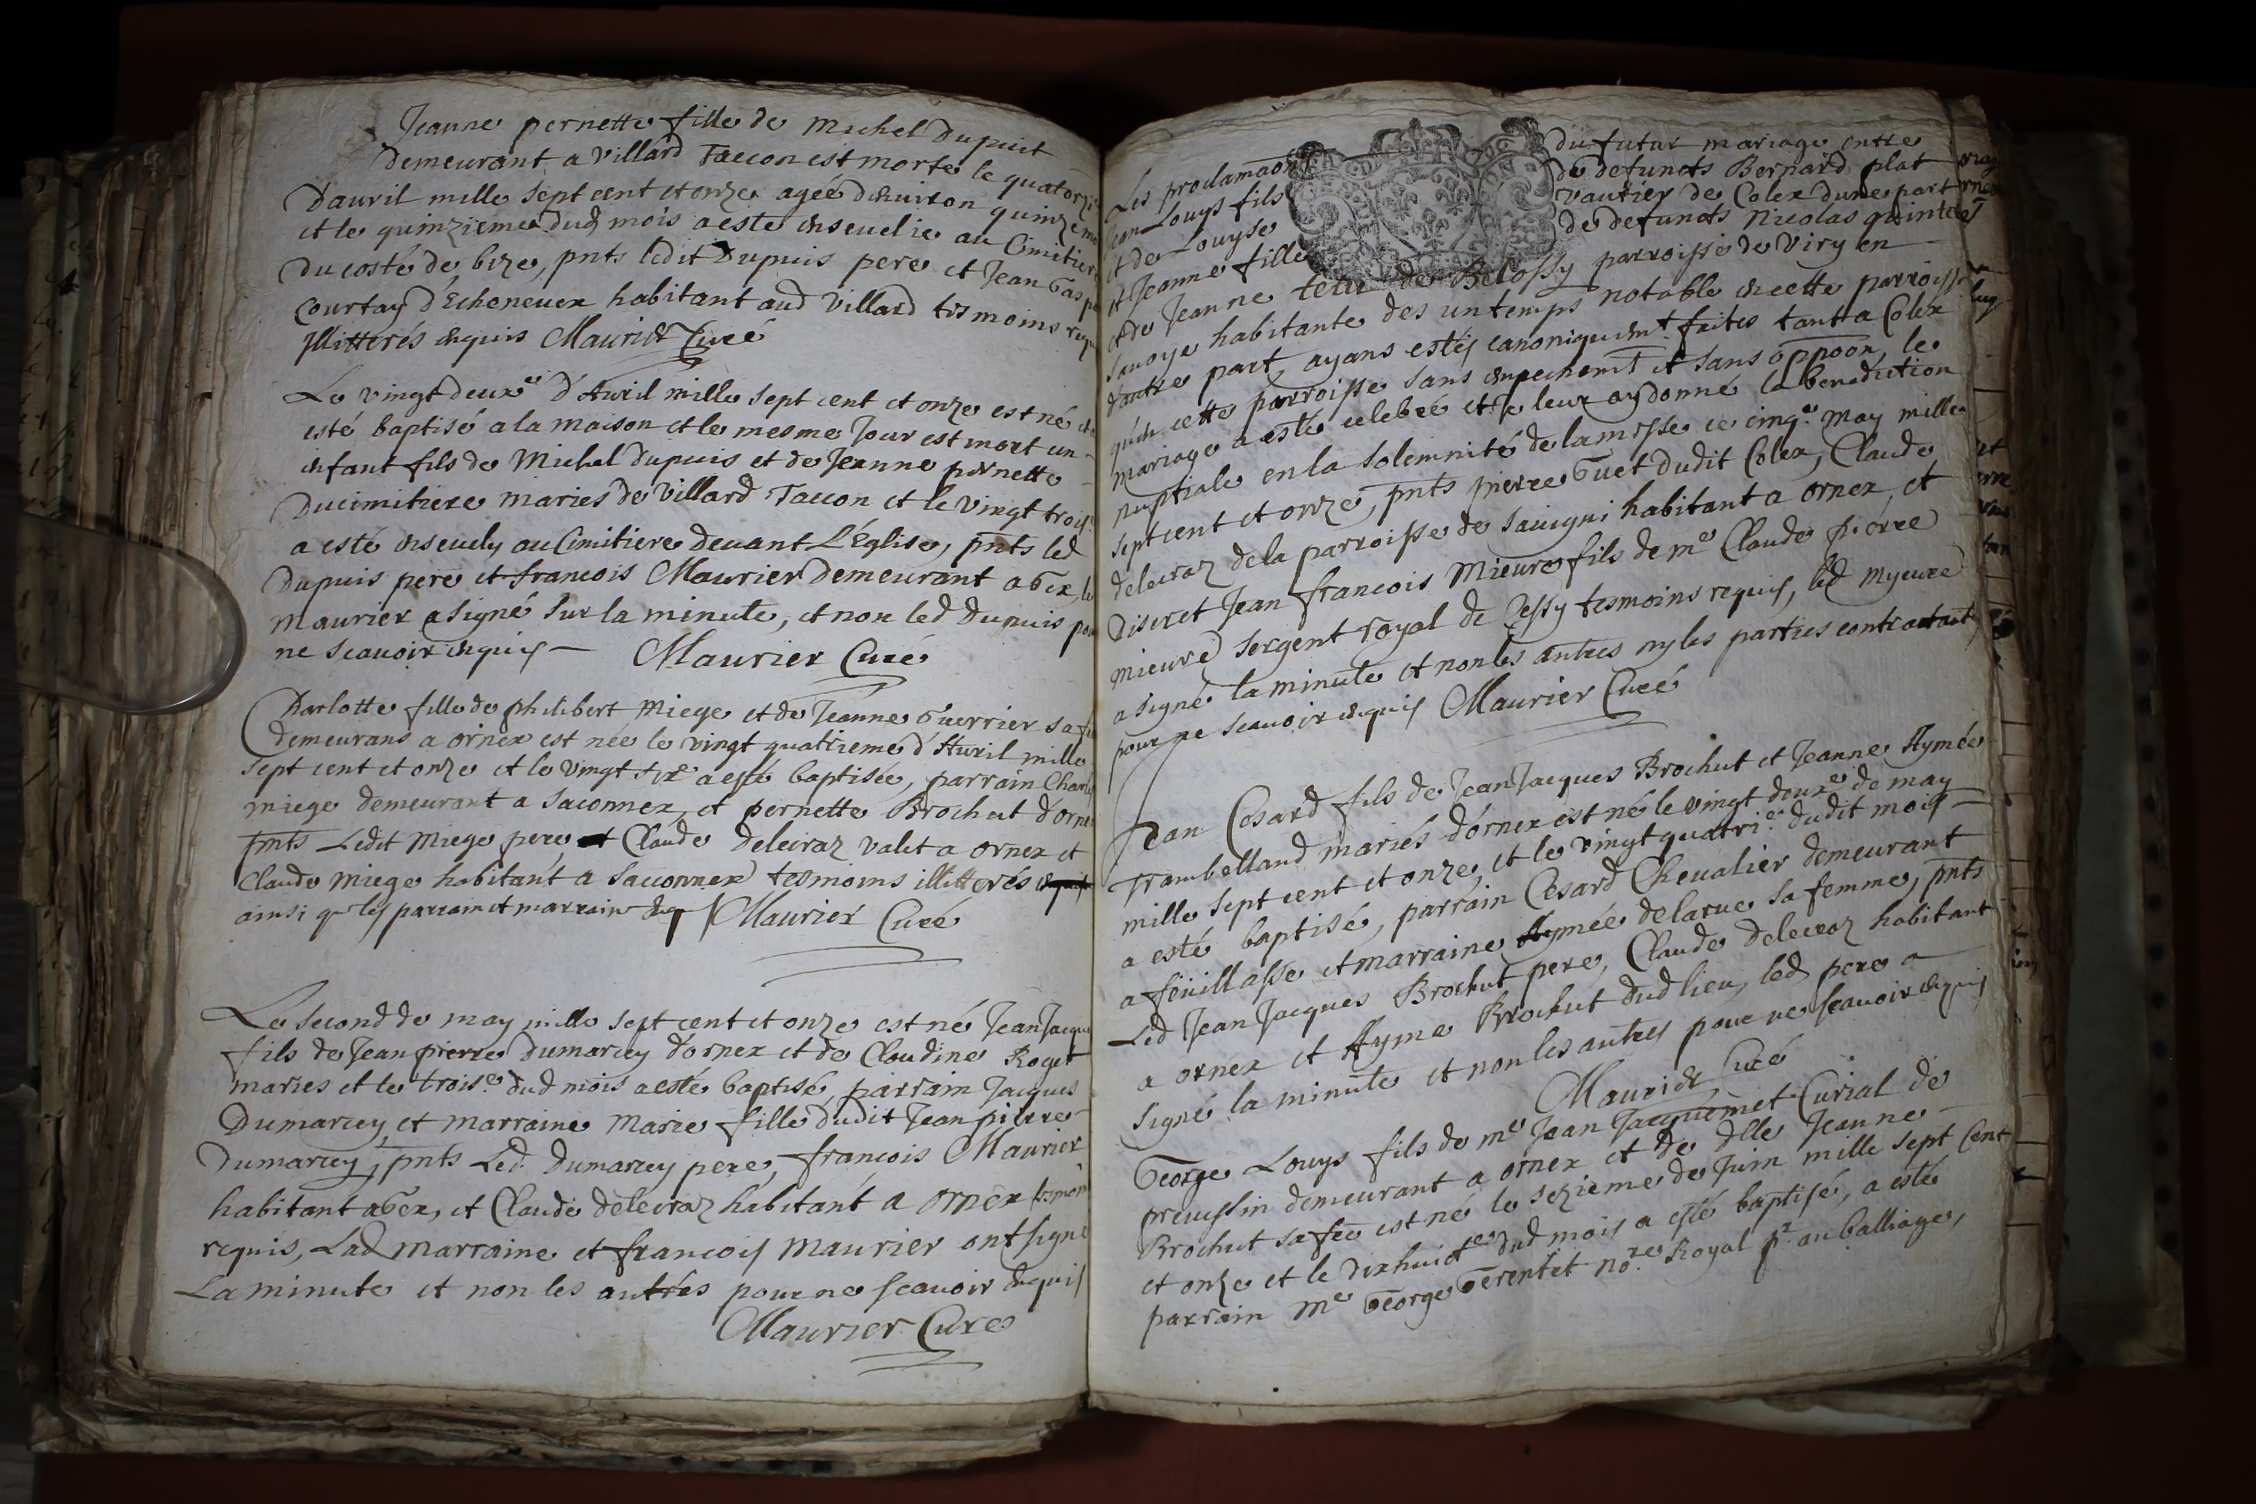 Jeanne pernette fille de Michel Dupuit
demeurant a villard Taccon est morte le quatorzie
D'auril mille sept cent et onze agée denuiron quinze mo
et le quinzieme dud mois a esté enseuelie au Cimitiere
du costé de bize, pnts ledit Dupuis pere et Jean Gaspa
Courtay d'Echeneuex habitant aud Villard tesmoins requ
illitterés enquis Maurier Curé
Le vingt deuxe d'Auril mille sept cent et onze est né et a
esté baptisé a la maison et le mesme Jour est mort un
enfant fils de Michel Dupuis et de Jeanne pernette
Ducimitiere maries de Villard Taccon et le vingt troise
a esté enseuely au Cimitiere deuant L'Église, pnts led
Dupuis pere et francois Maurier demeurant a Gex, le
Maurier a signé sur la minute, et non led Dupuis pour
ne scauoir enquis Maurier Curé
Charlotte fille de philibert Miege et de Jeanne Guerrier sa fe
demeurans a ornex est née le vingt quatrieme d'Auril mille
sept cent et onze et le vingt sixe a esté baptisée, parrain Charle
miege demeurant a Saconnex, et pernette Brochut d'orne
pnts Ledit Miege pere, Claude deleiraz valet a ornex et
Claude Miege habitant a Saconnex tesmoins illitterés
ainsi que les parrain et marraine enq Maurier Curé
Le second de may mille sept cent et onze est né Jean Jacque
fils de Jean pierre Dumarcey d'ornex et de Claudine Roget
maries et le troise dud mois a esté baptisé, parrain Jacques
Dumarcey, et marraine Marie fille dudit Jean pierre
Dumarcey, pnts Led. Dumarcey pere, francois Maurier
habitant a Gex, et Claude deleiraz habitant a ornex tesmoin
requis, Lad marraine et francois Maurier ont signé
La minute et non les autres pour ne scauoir enquis
Maurier Cure
Les proclamaons du futur mariage entre
Jean Louys fils de defuncts Bernard plat
et de Louyse Vautier de Colex dune part
et Jeanne fille de defuncts Nicolas quintet
et de Jeanne tette de Belossy parroisse de Viry en
Sauoye habitante des un temps notable en cette parroisse
d'autre part, ayans estés canoniquemt. faites tant a Colex
qu'en cette parroisse sans empechemt et sans oppoon, le
mariage a esté celebré et Je leur ay donné la benediction
nuptiale en la solemnité de la messe ce cinqe. may mille
sept cent et onze, pnts pierre Guet dudit Colex, Claude
deleiraz de la parroisse de Sauigni habitant a ornex, et
Discret Jean francois Mieure fils de Me Claude pierre
mieure sergent royal de Cessy tesmoins requis, led Myeure
a signé la minute et non les autres ny les parties contractant
pour ne scauoir enquis Maurier Curé
Jean Cesard fils de Jean Jacques Brochut et Jeanne Aymée
Trambelland mariés d'ornex est né le vingt deuxe. de may
mille sept cent et onze, et le vingt quatrie. dudit mois
a esté baptisé, parrain Cesard Cheualier demeurant
a feüillasse et marraine Aymée delarue sa femme, pnts
Led Jean Jacques Brochut pere, Claude deleiraz habitant
a ornex et Ayme Brochut dud lieu, led pere a
signé la minute et non les autres pour ne scauoir enquis
Maurier Curé
George Louys fils de Me Jean Jacquemet Curial de
preuessin demeurant a ornex et de dlle Jeanne
Brochut sa fee est né le sezieme de Juin mille sept Cent
et onze et le dixhuicte dud mois a esté baptisé, a esté
parrain Me George Gerentet nore. Royal pr au balliage,